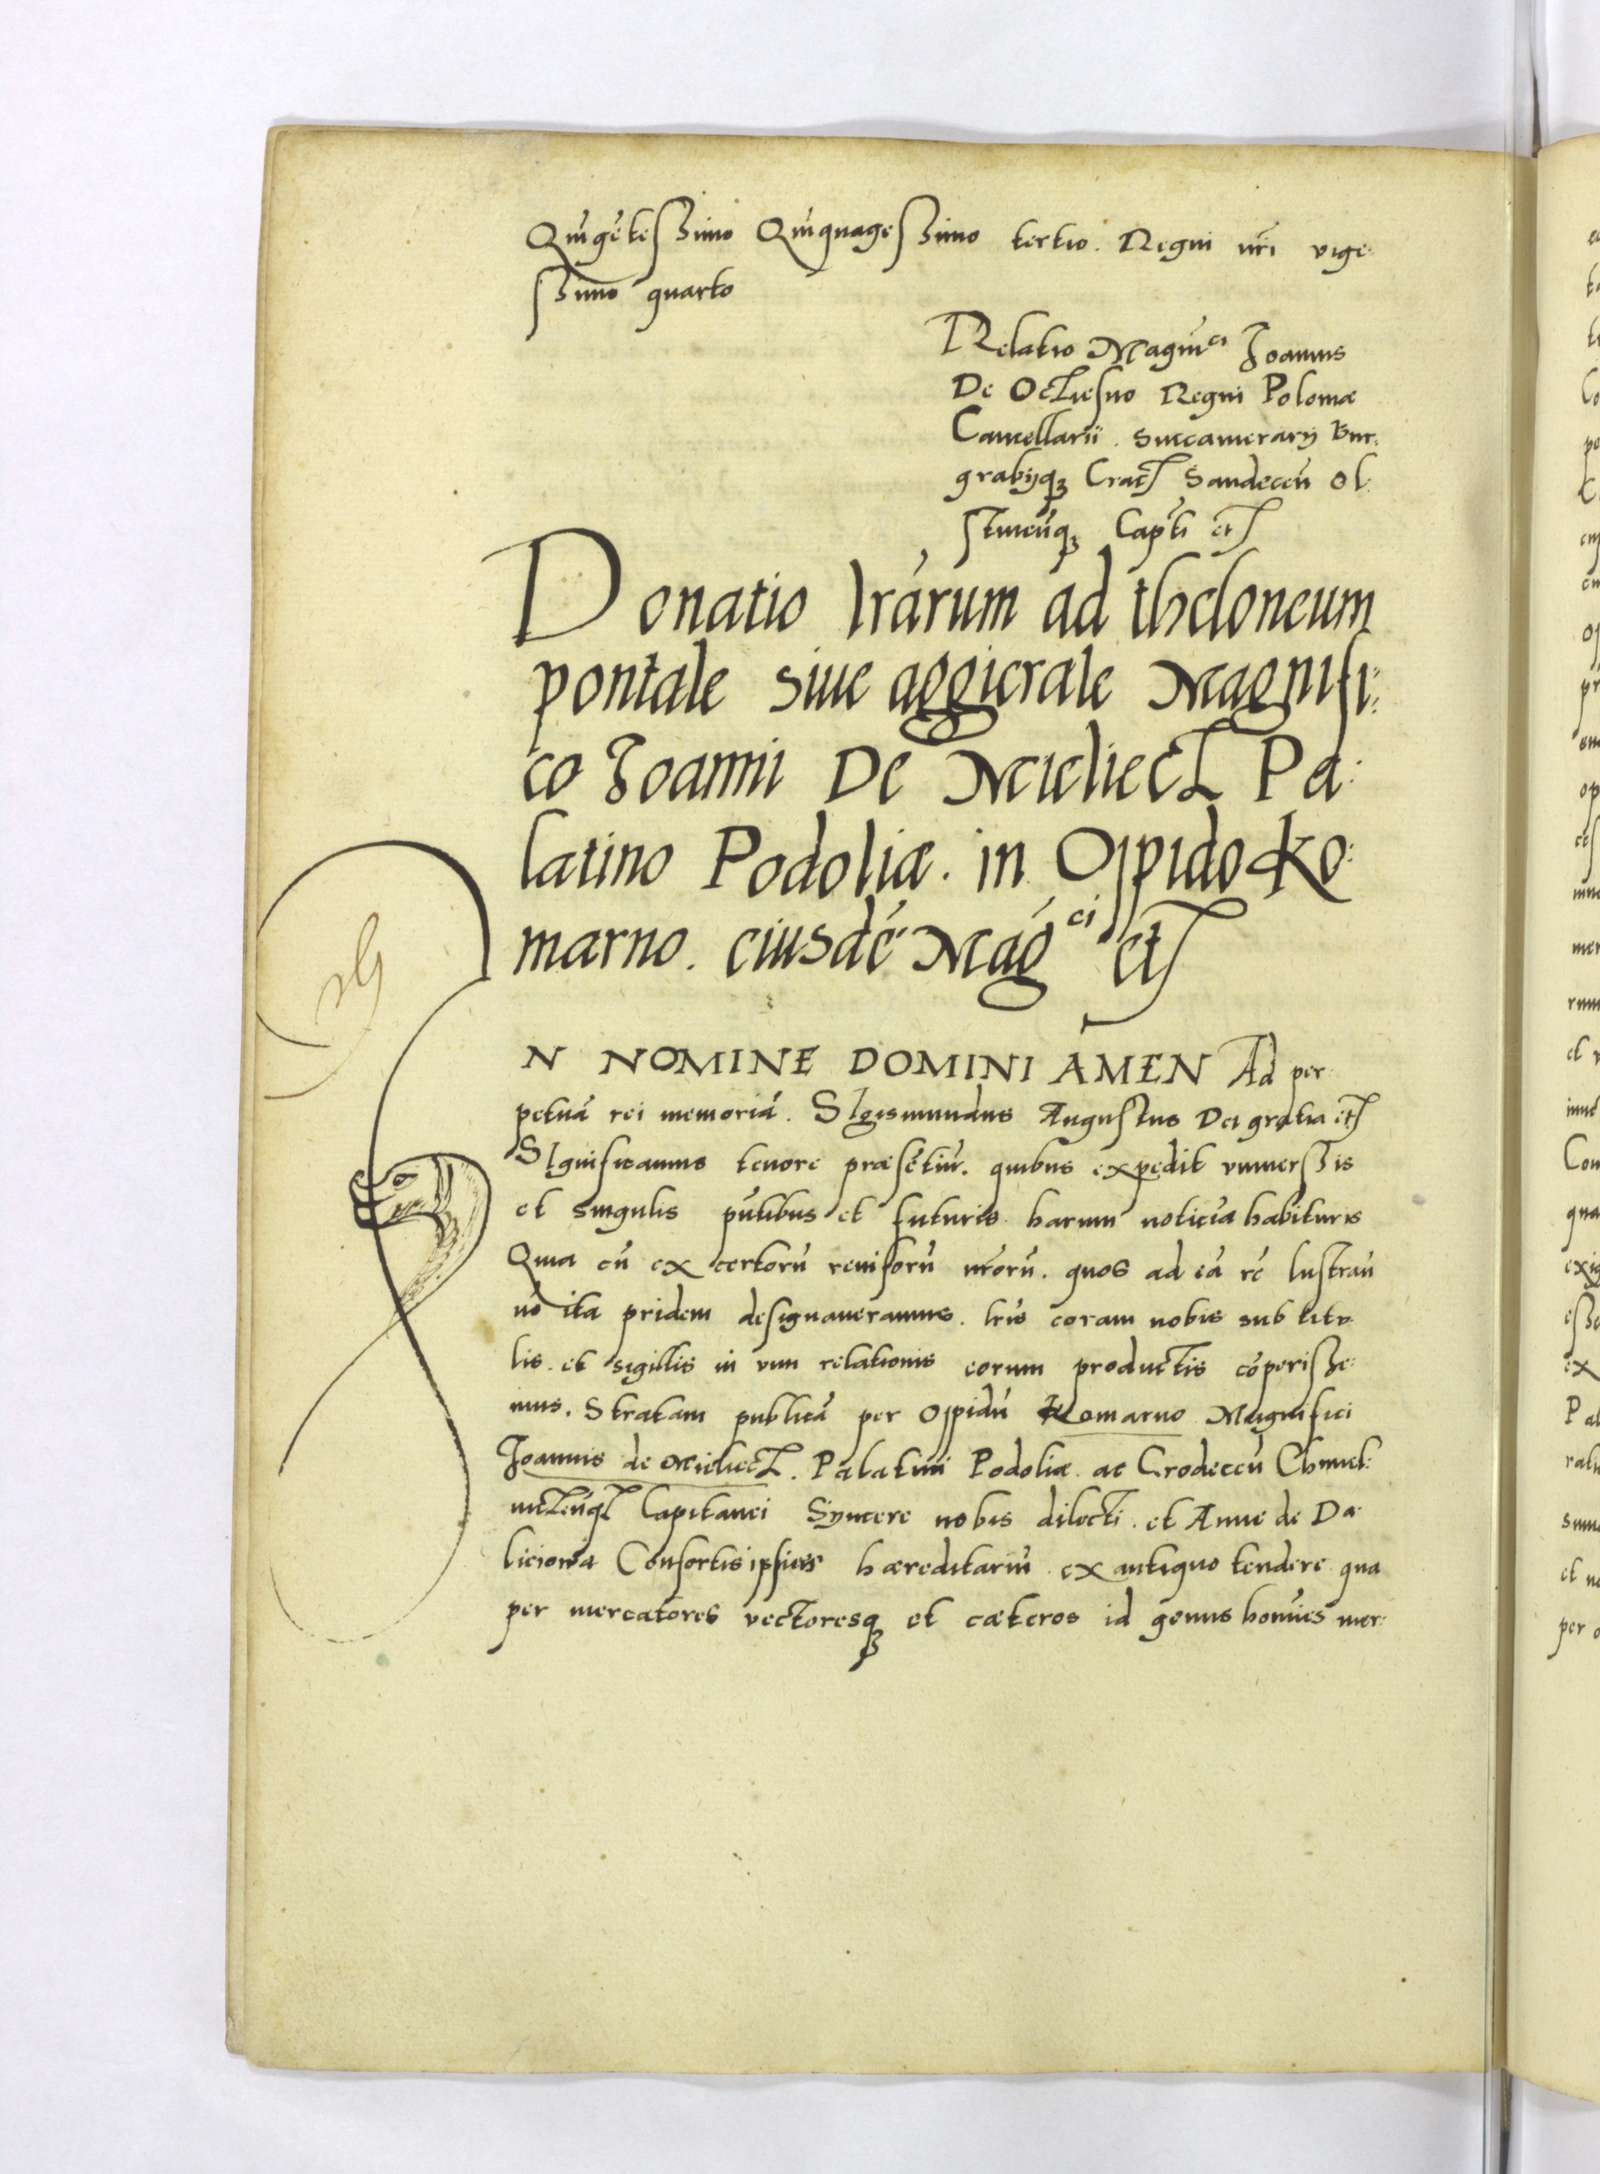 Quīgētessimo Quīquagessimo tertio. Regni nr̄i vige:
ssimo quarto
Relatio Magnīci Joannis
De Octiesno Regni Poloniæ
Cancellarii. Succamerarij Bur:
grabijqꝫ Crac̄ Sandeceñ Ol:
stineñqꝫ Capti etc̄
Donatio lrārum ad theloneum
pontale siue aggierale Magnifi:
co Joanni De Mieliecz Pa:
latino Podoliæ. in Oppido Ko:
marno. eiusdē Magci etc̄
N NOMINE DOMINI AMEN Ad per:
petuā rei memoriā. SIgismundus Augustus Dei gratia etc̄
SIgnificamus tenore præsētiū. quibus expedit vniuerssis
et singulis pn̄tibus et futuris harum noticiā habituris
Quia cū ex certorū reuisorū nr̄orū. quos ad eā rē lustrañ
nō ita pridem designaueramus. lrīs coram nobis sub titu:
lis. et sigillis in vim relationis eorum productis cōperisse:
mus. Stratam publicā per Oppidū Komarno Magnifici
Joannis de Mieliecz. Palatini Podoliæ. ac Grodeceñ Chmiel:
nicieñqꝫ Capitanei Syncere nobis dilecti. et Anne de Da:
liciowa Consortis ipsius hæreditariū. ex antiquo tendere qua
per mercatores vectoresqꝫ et cæteros id genus homīes mer: